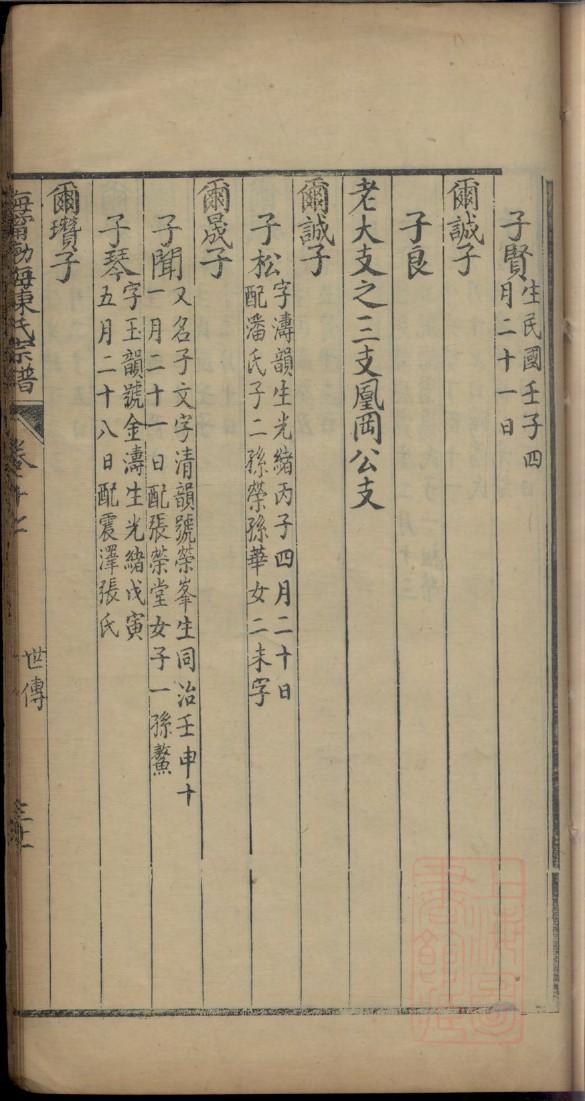 子賢生民國壬子四
月二十一日
爾誠子
子良
老大支之三支鳳岡公支
爾誠子
子松字濤韻生光緒丙子四月二十日
配潘氏子二孫榮孫華女二未字
爾晟子
子聞又名子文字清韻號榮峯生同治壬申十
一月二十一日配張榮堂女子一孫鰲
子琴字玉韻號金濤生光緒戊寅
五月二十八日配震澤張氏
爾瓚子
海甯渤海陳氏宗譜
世傳